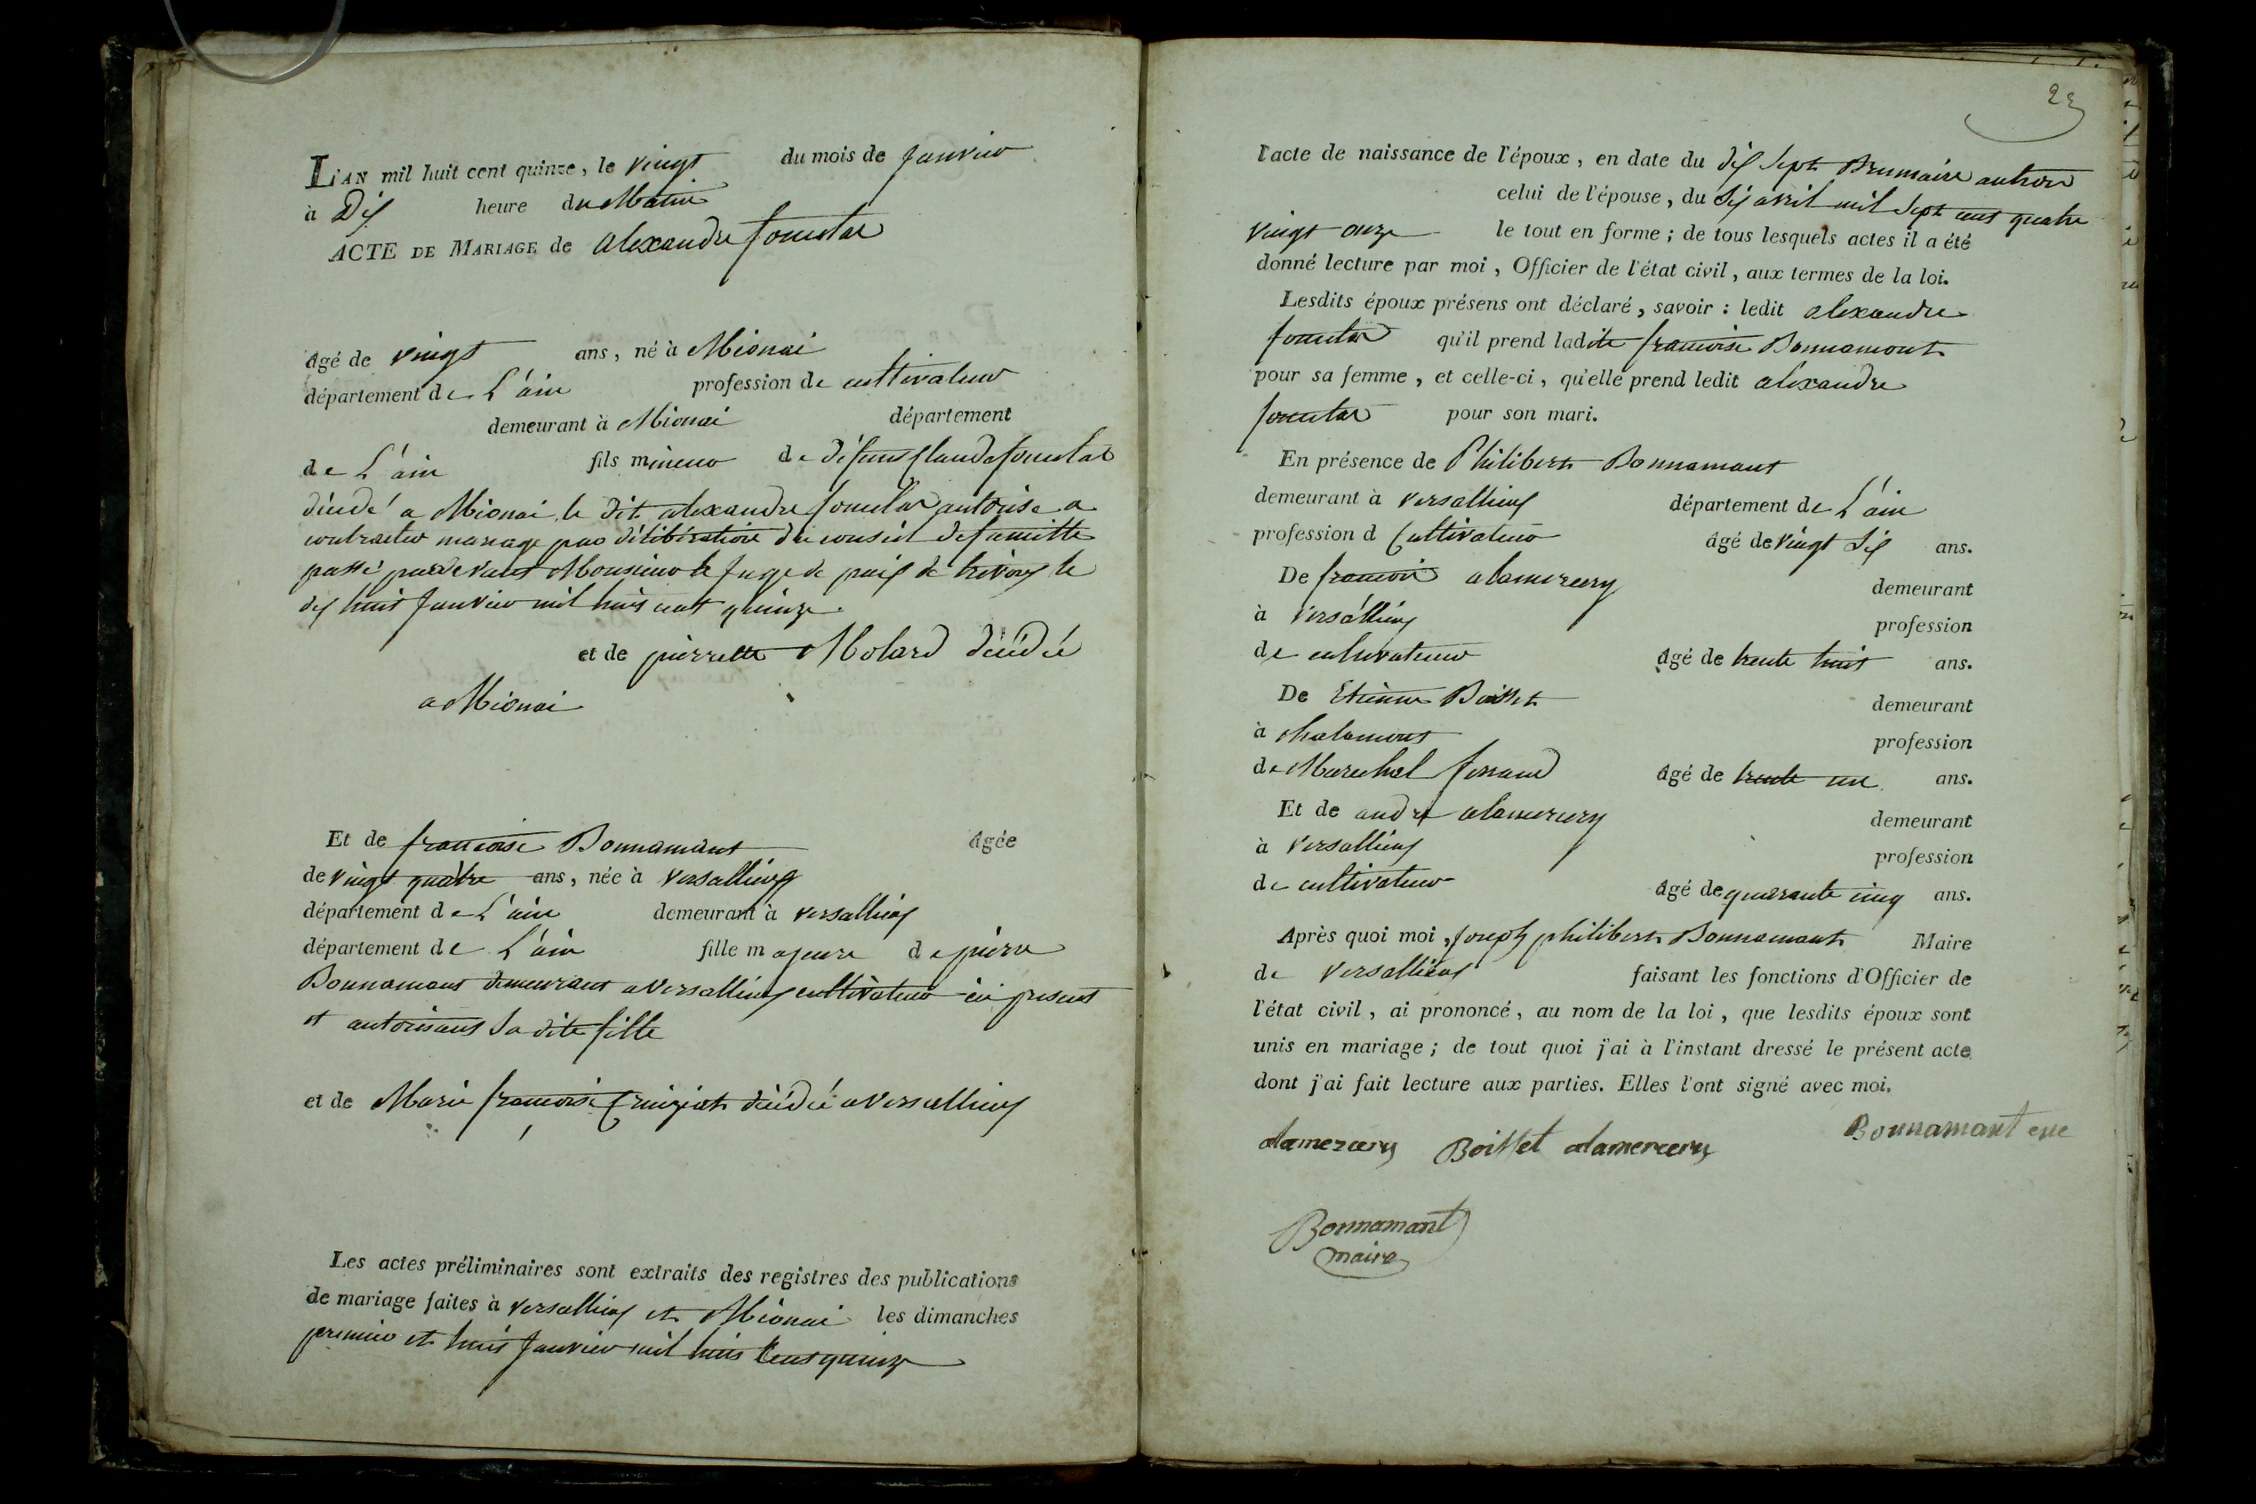 L'AN mil huit cent quinze, le vingt du mois de Janvier
à Dix heure du Matin
ACTE DE MARIAGE de alexandre
âgé de vingt ans, né à Mionai
département de L'ain profession de cultivateur
demeurant à Mionai département
de L'ain fils mineur de défunt Claude
décédé a Mionai, le dit alexandre autorisé a
contracter mariage par déliberation du conseil de famille
passé pardevant Monsieur le Juge de paix de trévoux le
dix huit Janvier mil huit cent quinze
et de pierrette Molard décédée
a Mionai
Et de francoise Bonnamant âgée
de vingt quatre ans, née à versallieux
département de L'ain demeurant à versallieux
département de L'ain fille majeure de pierre
Bonnamant demeurant a versallieux cultivateur ici présent
et autorisant Sa dite fille
et de Marie francoise décédée a versallieux
Les actes préliminaires sont extraits des registres des publications
de mariage faites à versallieux et Mionai les dimanches
premier et huit Janvier mil huit Cent quinze
23
l'acte de naissance de l'époux, en date du dix Sept Brumaire an trois
celui de l'épouse, du Six avril mil Sept cent quatre
vingt onze le tout en forme; de tous lesquels actes il a été
donné lecture par moi, Officier de l'état civil, aux termes de la loi.
Lesdits époux présens ont déclaré, savoir: ledit alexandre
qu'il prend ladite francoise Bonnamant
pour sa femme, et celle-ci, qu'elle prend ledit alexandre
pour son mari.
En présence de Philibert Bonnamant
demeurant à versallieux département de L'ain
profession d Cultivateur âgé de vingt Six ans.
De francois alamercery demeurant
à versallieux profession
de cultivateur âgé de trente huit ans.
De Etienne Boisset demeurant
à chalamont profession
de Marechal ferrand âgé de trente un ans.
Et de andré alamercery demeurant
à versallieux profession
de cultivateur âgé de quarante cinq ans.
Après quoi moi, Joseph philibert Bonnamant Maire
de versallieux faisant les fonctions d'Officier de
l'état civil, ai prononcé, au nom de la loi, que lesdits époux sont
unis en mariage; de tout quoi j'ai à l'instant dressé le présent acte
dont j'ai fait lecture aux parties. Elles l'ont signé avec moi.
alamercery Boisset alamercery Bonnamant
Bonnamant
maire